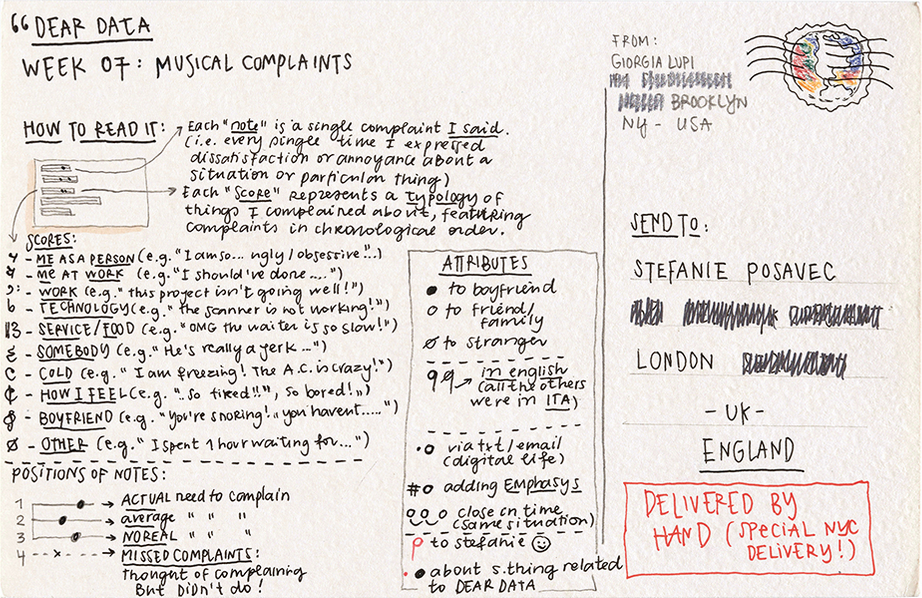 “ DEAR DATA
WEEK 07: MUSICAL COMPLAINTS
HOW TO READ IT:
Each "note" is a single complaint I said.
(i.e. every single time I expressed
dissatisfaction or annoyance about a
situation or particular thing)
Each "score" represents a typology of
things I complained about, featuring
complaints in chronological order.
SCORES:
- ME AS A PERSON (e.g. "I am so... ugly/obsessive!..)
- ME AT WORK (e.g. "I should've done ....")
- WORK (e.g. "this project isn't going well!")
- TECHNOLOGY (e.g. "the scanner is not working!")
- SERVICE/FOOD (e.g. "OMG the waiter is so slow!")
- SOMEBODY (e.g. "He's really a jerk ...")
- COLD (e.g. "I am freezing! The A.C. is crazy!")
- HOW I FEEL (e.g. "..so tired!!", so bored!")
- BOYFRIEND (e.g. "You're snoring! "you haven't.....")
- OTHER (e.g. "I spent 1 hour waiting for...")
POSITIONS OF NOTES:
1 ACTUAL need to complain
2 average " " "
3 NO REAL " " "
4 MISSED COMPLAINTS:
thought of complaining
But DIDN'T do!
ATTRIBUTES
to boyfriend
to friend/
family
to stranger
in english
(all the others
were in ITA)
via txt/email
(digital life)
#o adding EMPHASYS
close in time
(same situation)
to stefanie
about s.thing related
to DEAR DATA
FROM:
GIORGIA LUPI
BROOKLYN
NY - USA
SEND TO:
STEFANIE POSAVEC
LONDON
- UK -
ENGLAND
DELIVERED BY
HAND (SPECIAL NYC
DELIVERY!)